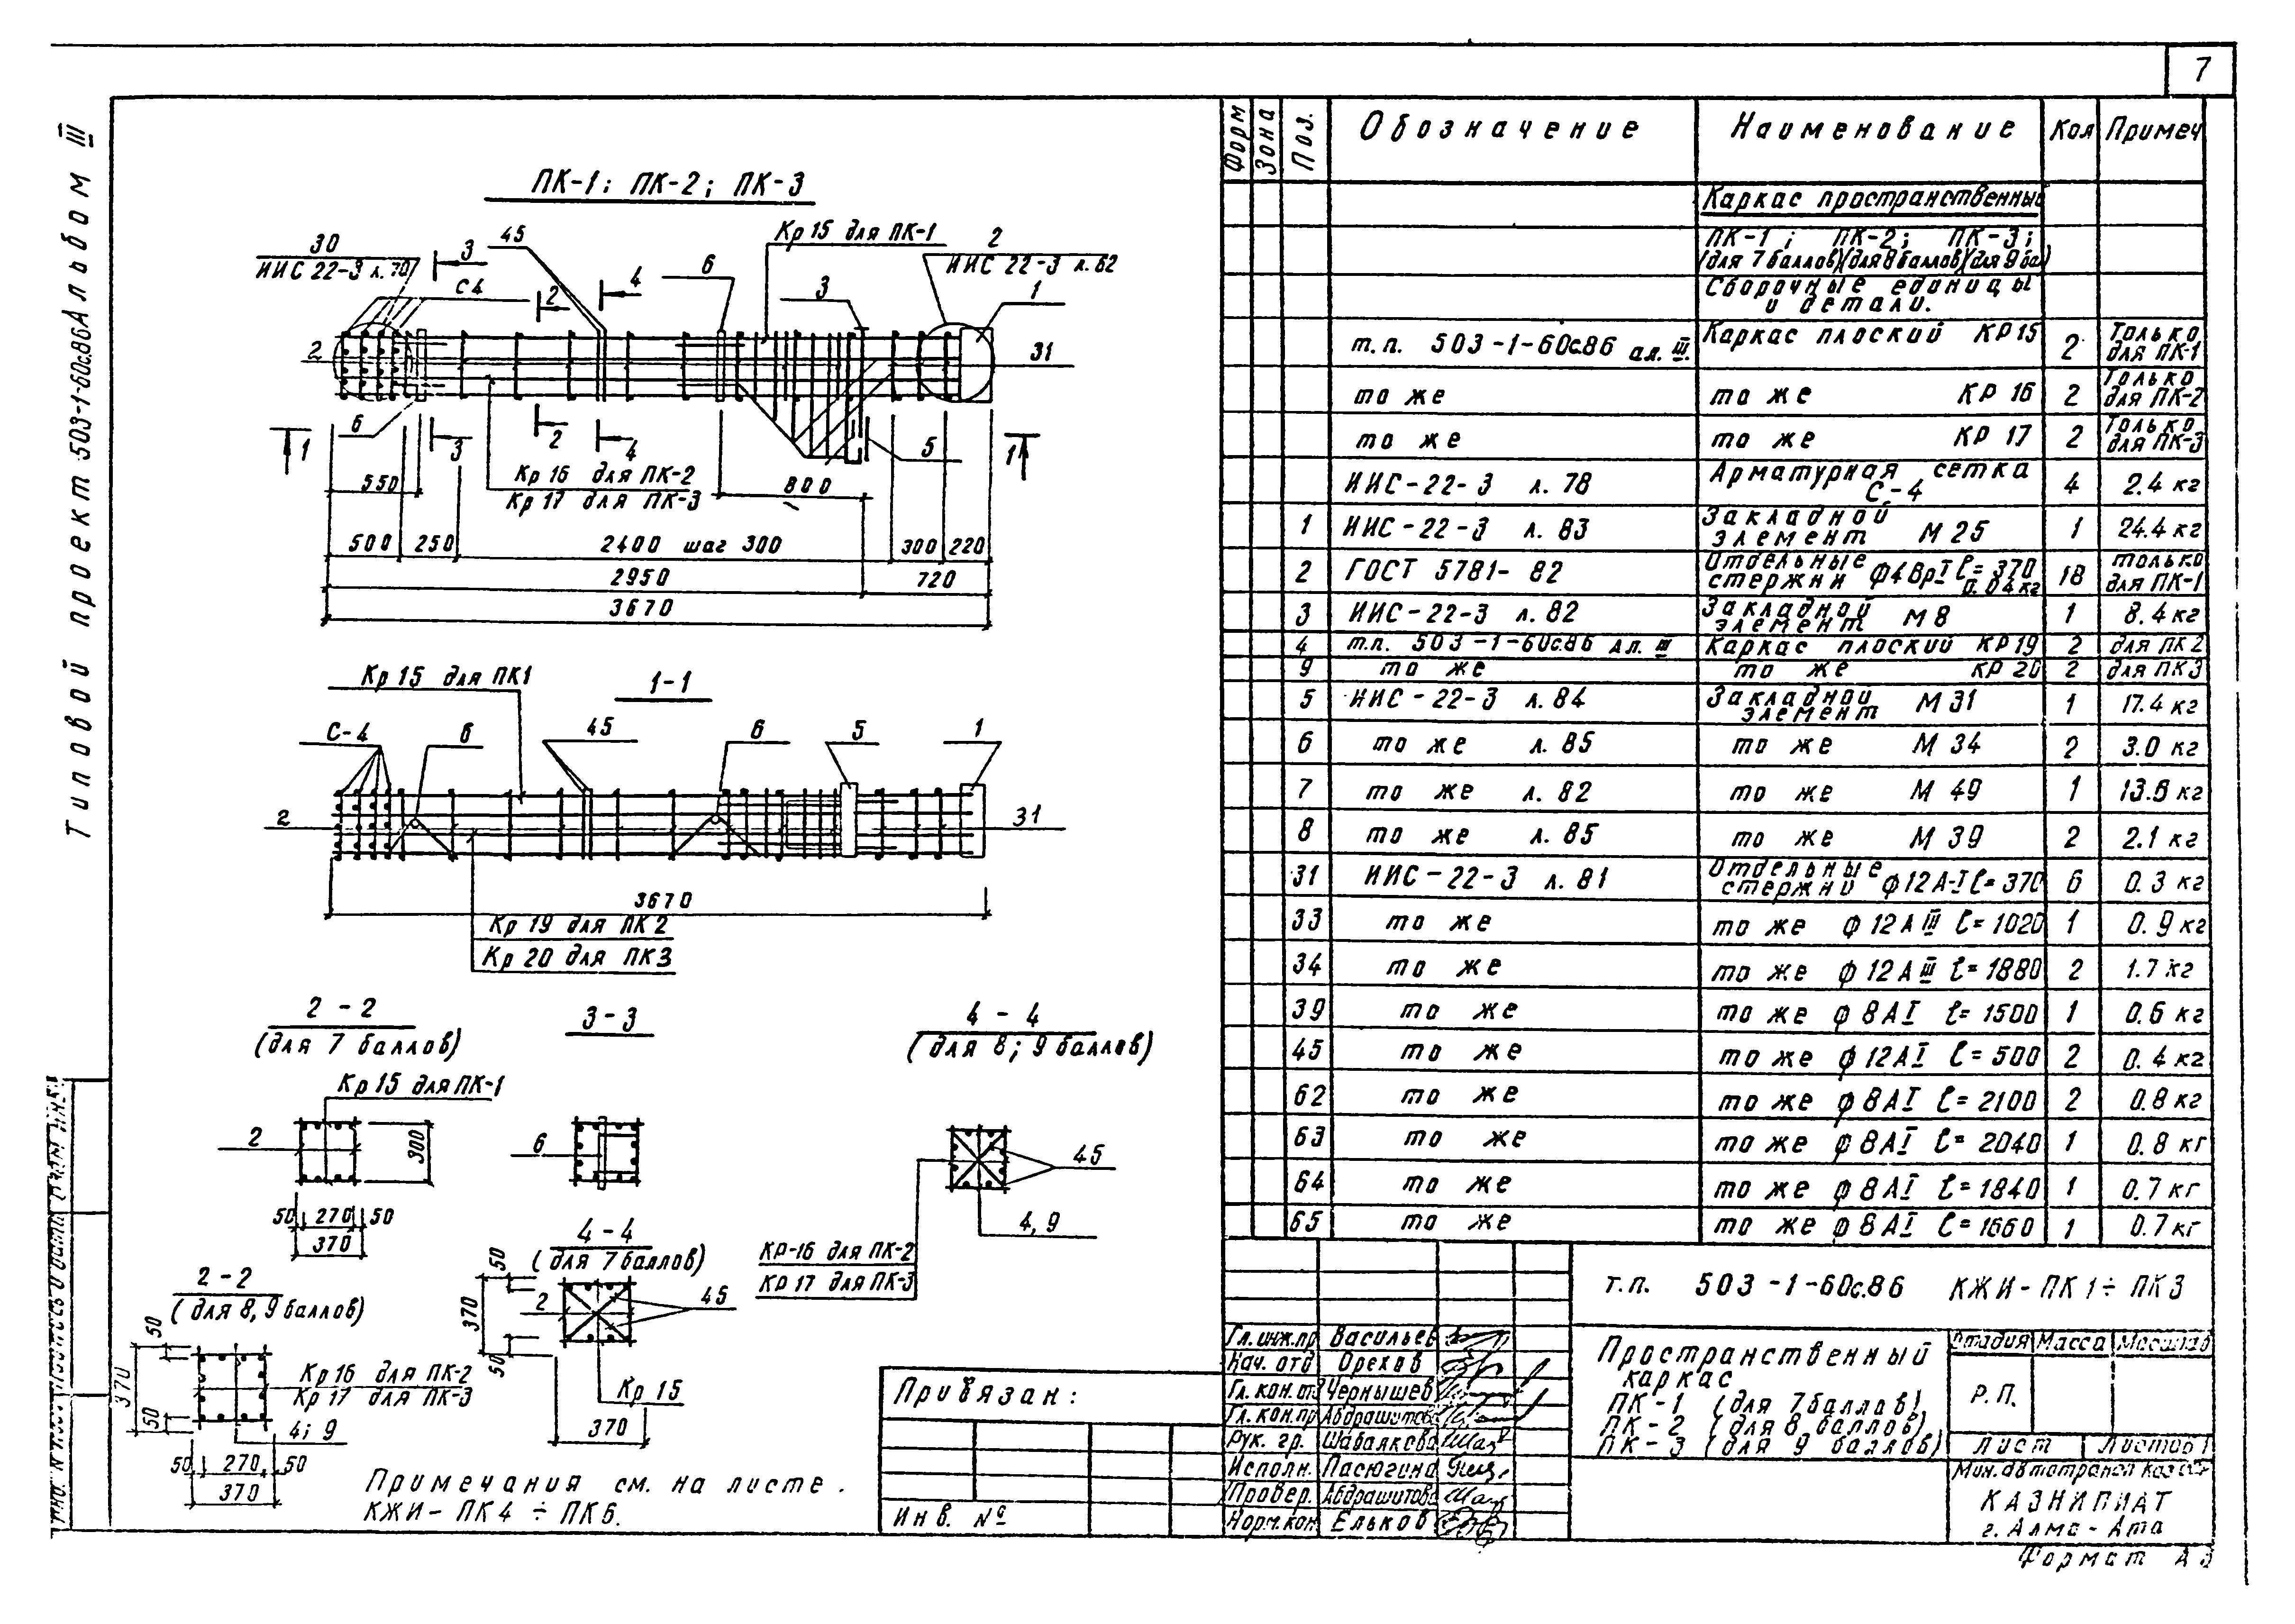 7
Типовой проект 503-1-60с.86 Альбом III
ПК-1; ПК-2; ПК-3
30
ИИС 22-3 л. 70
3
45
4
6
Кр 15 для ПК-1
2
ИИС 22-3 л. 62
С4
2
3
1
2
31
6
1
3
2
4
5
1
Кр 16 для ПК-2
Кр 17 для ПК-3
550
800
500
250
2400 шаг 300
300
220
2950
720
3670
Кр 15 для ПК1
1-1
С-4
6
45
6
5
1
2
31
3670
Кр 19 для ПК2
Кр 20 для ПК3
2-2
(для 7 баллов)
3-3
4-4
(для 8; 9 баллов)
Кр 15 для ПК-1
2
300
50
270
50
370
6
45
4,9
Кр-16 для ПК-2
Кр 17 для ПК-3
2-2
(для 8,9 баллов)
50
370
50
Кр 16 для ПК-2
Кр 17 для ПК-3
4; 9
50
270
50
370
4-4
(для 7 баллов)
50
370
50
2
45
Кр 15
370
Примечания см. на листе.
КЖИ-ПК4 ÷ ПК6.
Привязан:
Инв. №
Форм
Зона
Поз.
Обозначение
Наименование
Кол
Примеч
Каркас пространственный
ПК-1; ПК-2; ПК-3;
(для 7 баллов)(для 8 баллов)(для 9 ба)
Сборочные единицы
и детали.
т.п. 503-1-60с.86 ал. III. Каркас плоский КР15 2 Только для ПК-1
то же то же КР 16 2 Только для ПК-2
то же то же КР 17 2 Только для ПК-3
ИИС-22-3 л. 78 Арматурная сетка С-4 4 2.4 кг
1 ИИС-22-3 л. 83 Закладной элемент М 25 1 24.4 кг
2 ГОСТ 5781-82 Отдельные стержни ф4ВрI ℓ=370 0.04кг 18 только для ПК-1
3 ИИС-22-3 л. 82 Закладной элемент М 8 1 8.4 кг
4 т.п. 503-1-60с.86 Ал. III Каркас плоский КР19 2 для ПК2
9 то же то же КР 20 2 для ПК3
5 ИИС-22-3 л. 84 Закладной элемент М 31 1 17.4 кг
6 то же л. 85 то же М 34 2 3.0 кг
7 то же л. 82 то же М 49 1 13.8 кг
8 то же л. 85 то же М 39 2 2.1 кг
31 ИИС-22-3 л. 81 Отдельные стержни ф12А-I ℓ=370 6 0.3 кг
33 то же то же ф12А III ℓ=1020 1 0.9 кг
34 то же то же ф12А III ℓ=1880 2 1.7 кг
39 то же то же ф8АI ℓ=1500 1 0.6 кг
45 то же то же ф12АI ℓ=500 2 0.4 кг
62 то же то же ф8АI ℓ=2100 2 0.8 кг
63 то же то же ф8АI ℓ=2040 1 0.8 кг
64 то же то же ф8АI ℓ=1840 1 0.7 кг
65 то же то же ф8АI ℓ=1660 1 0.7 кг
т.п. 503-1-60с.86 КЖИ-ПК1÷ПК3
Гл. инж. пр Васильев
Нач. отд Орехов
Гл. кон. от Чернышев
Гл. кон. пр Абдрашитова
Рук. гр. Шабалкова
Исполн. Пасюгина
Провер. Абдрашитова
Норм. кон. Ельков
Пространственный
каркас
ПК-1 (для 7 баллов)
ПК-2 (для 8 баллов)
ПК-3 (для 9 баллов)
Стадия Масса Масштаб
Р.П.
Лист
Листов 1
КАЗНИПИАТ
г. Алма-Ата
Формат А3